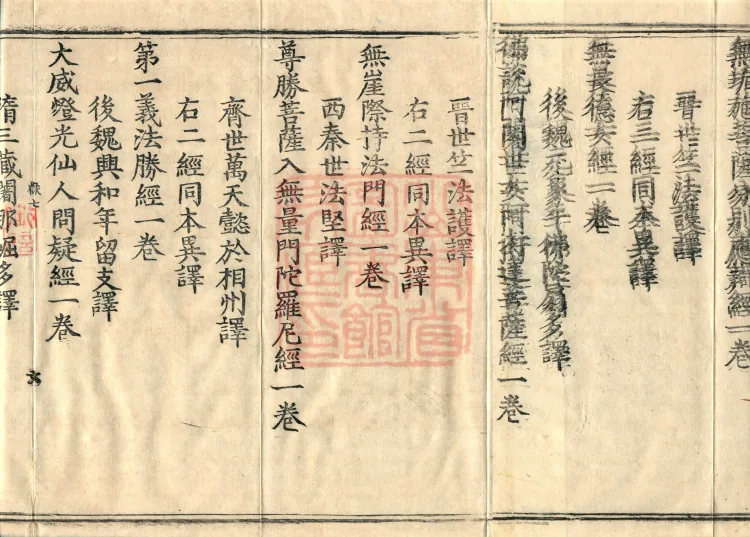 無垢施菩薩分別應辯經一卷
晋世竺法護譯
右三經同本異譯
無畏德女經一卷
後魏元象年佛陀扇多譯
佛說阿闍世女阿術達菩薩經一卷
晋世竺法護譯
右二經同本異譯
無崖際持法門經一卷
西秦世法堅譯
尊勝菩薩入無量門陀羅尼經一卷
齊世萬天懿於相州譯
右二經同本異譯
第一義法勝經一卷
後魏興和年留支譯
大威燈光仙人問疑經一卷
隋三藏闍那崛多譯